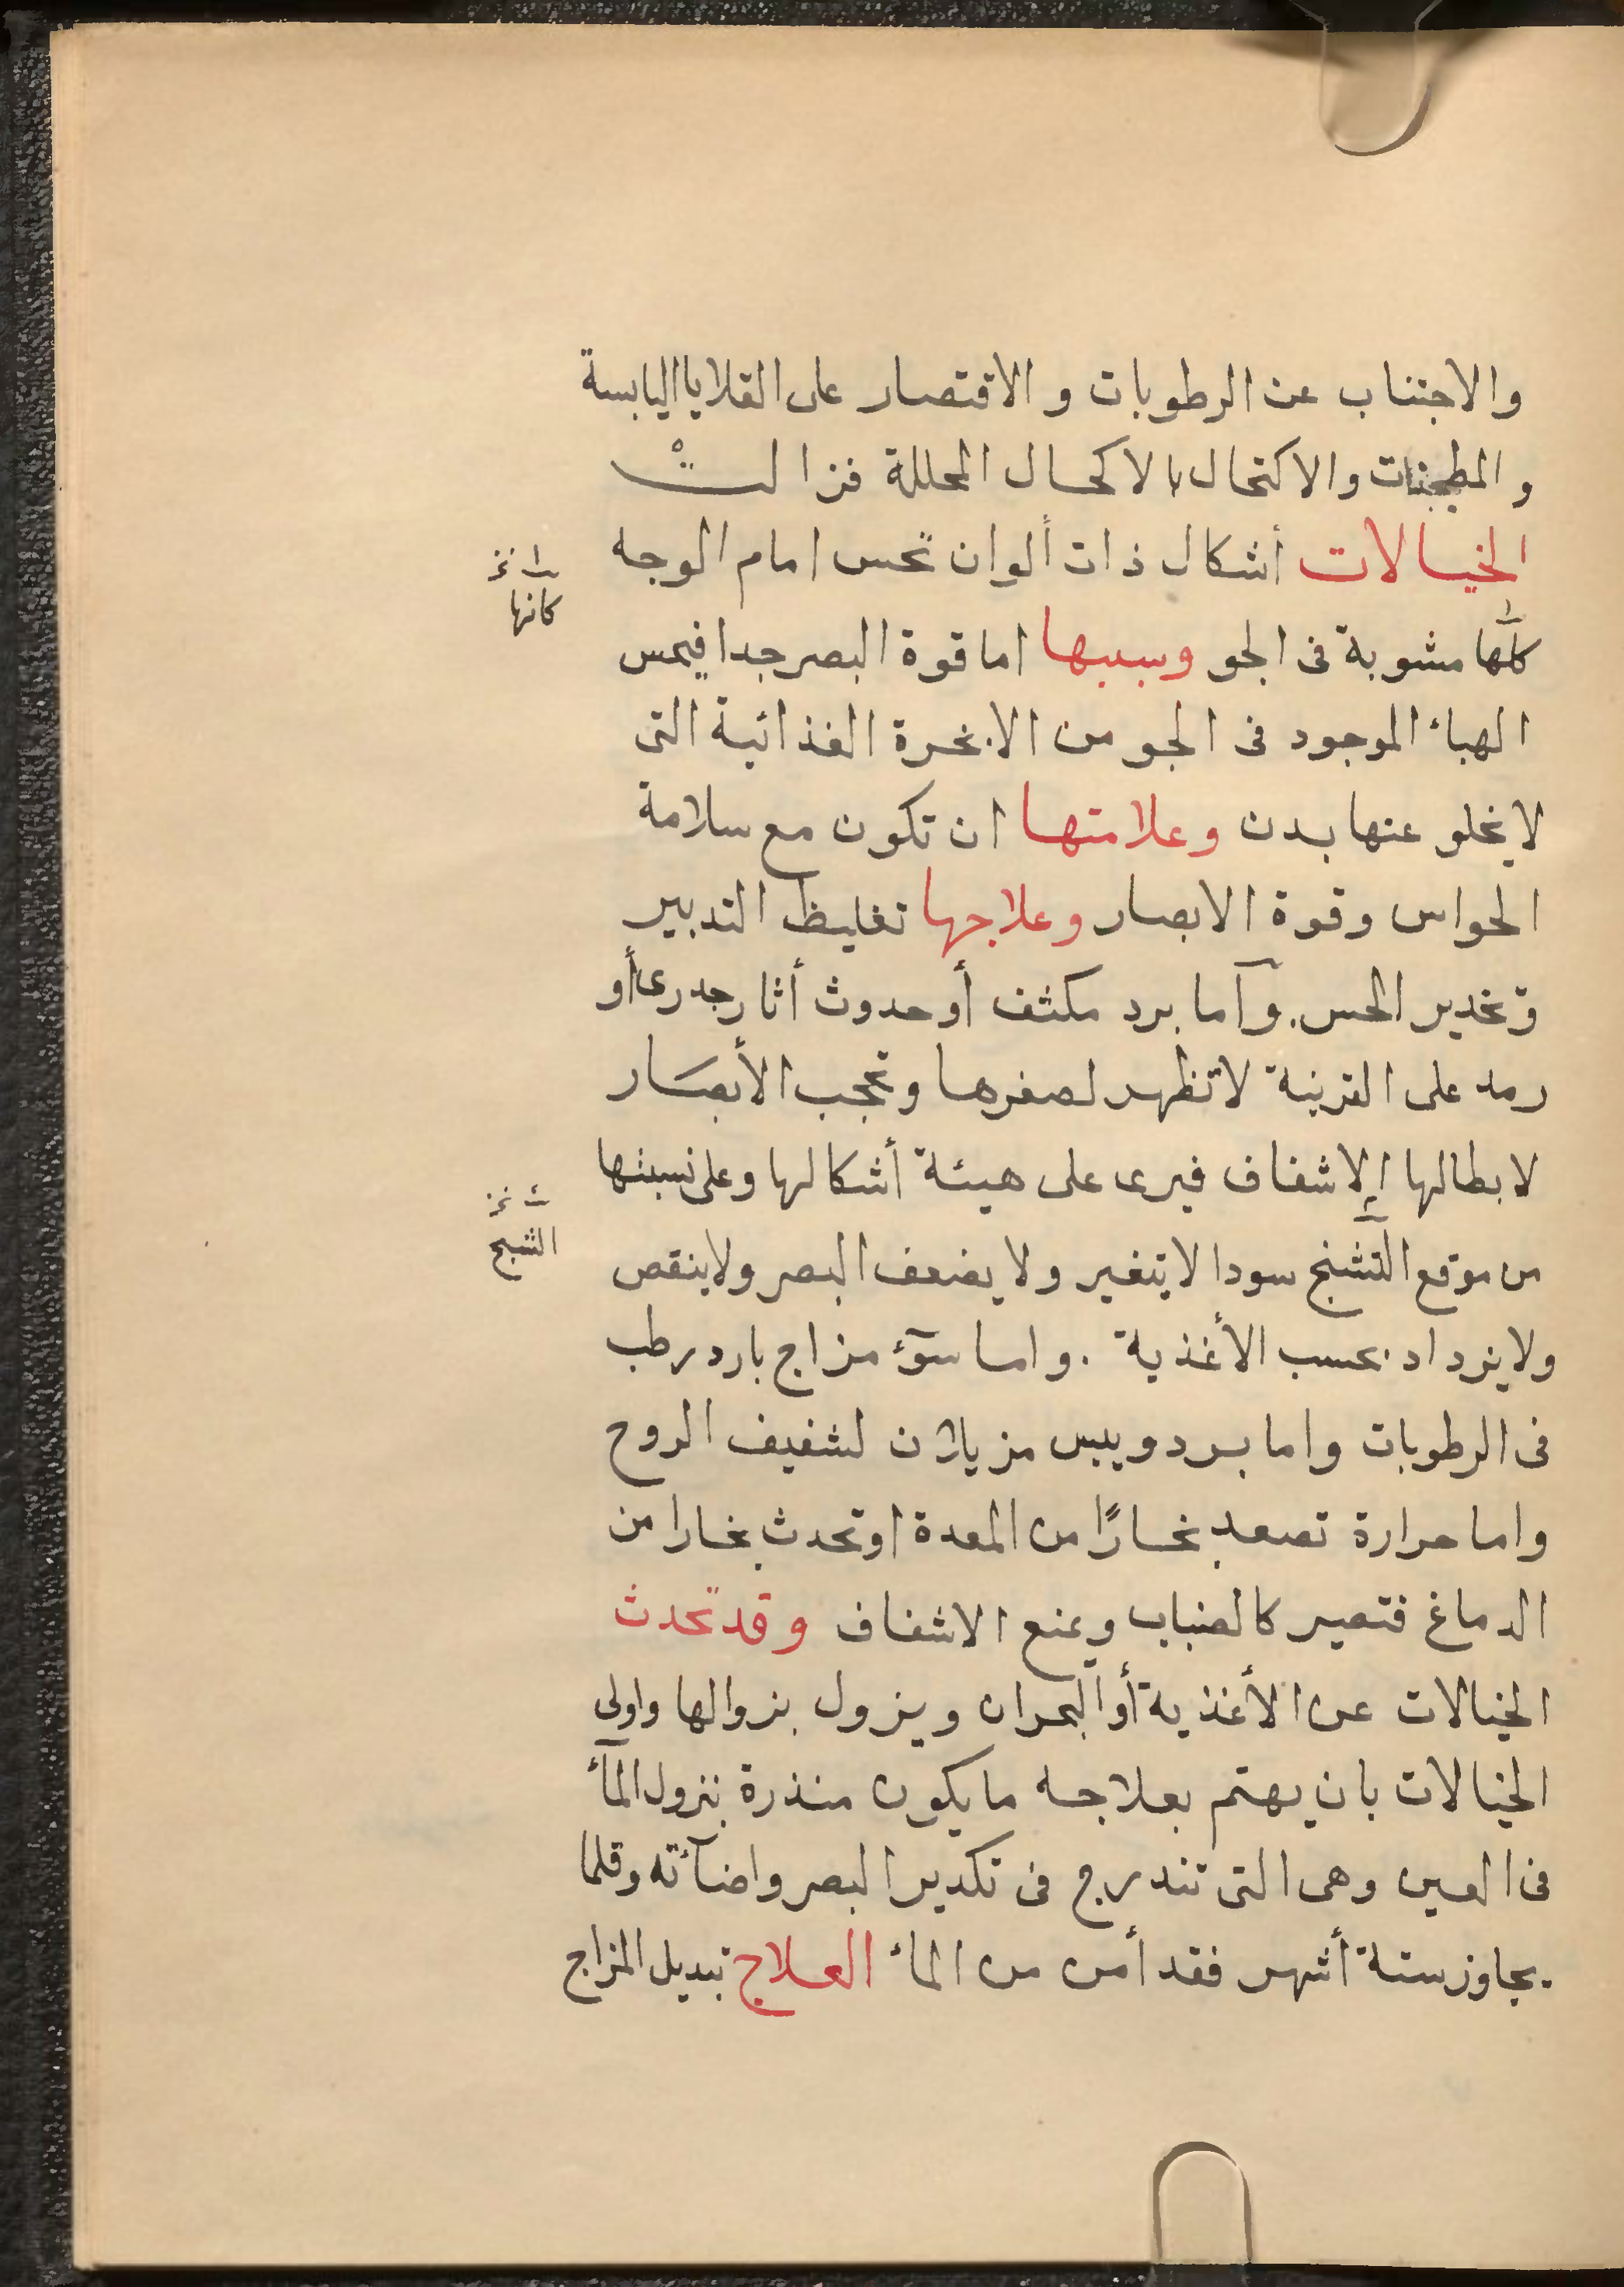 والاجتناب عن الرطوبات و الاقتصار على القلايا اليابسة
و المطجنات والاكتحال بالاكحال المحللة فزالتْ
الخيالات أشكال ذات ألوان تحس امام الوجه
كلّها مشوبة فى الجو وسببها اما قوة البصر جدا فيحس
الهبأ الموجود فى الجو من الابخرة الغذائية التى
لا يخلو عنها بدن وعلامتها ان تكون مع سلامة
الحواس وقوة الابصار وعلاجها تغليظ التدبير
و تخدير الحس. وآما برد مكثف أو حدوث أثار جدرى أو
رمد على القرنية لا تظهر لصغرها وتحجب الأبصَار
لابطالها الإشفاف فيرى على هيئة أشكالها وعلى نسبتها
من موقع التشنج سودا لا يتغير ولا يضعف البصر ولا ينقص
ولا يزداد بحسب الأغذية . واما سوٓء مزاج بارد رطب
فى الرطوبات واما برد ويبس مزيلان لشفيف الروح
واما حرارة تصعد بخارًا من المعدة او تحدث بخارا من
الدماغ فتصير كالضباب ويمنع الاشفاف وقد تحدث
الخيالات عن الأغذية أو البحران ويزول بزوالها واولى
الخيالات بان يهتم بعلاجه ما يكون منذرة بنزول المآء
فى العين وهى التى تندرج فى تكدير البصر واضآئته وقلما
يجاوز ستة أشهر فقد أمن من المأ العلاج تبديل المزاج
كانها
الشبح